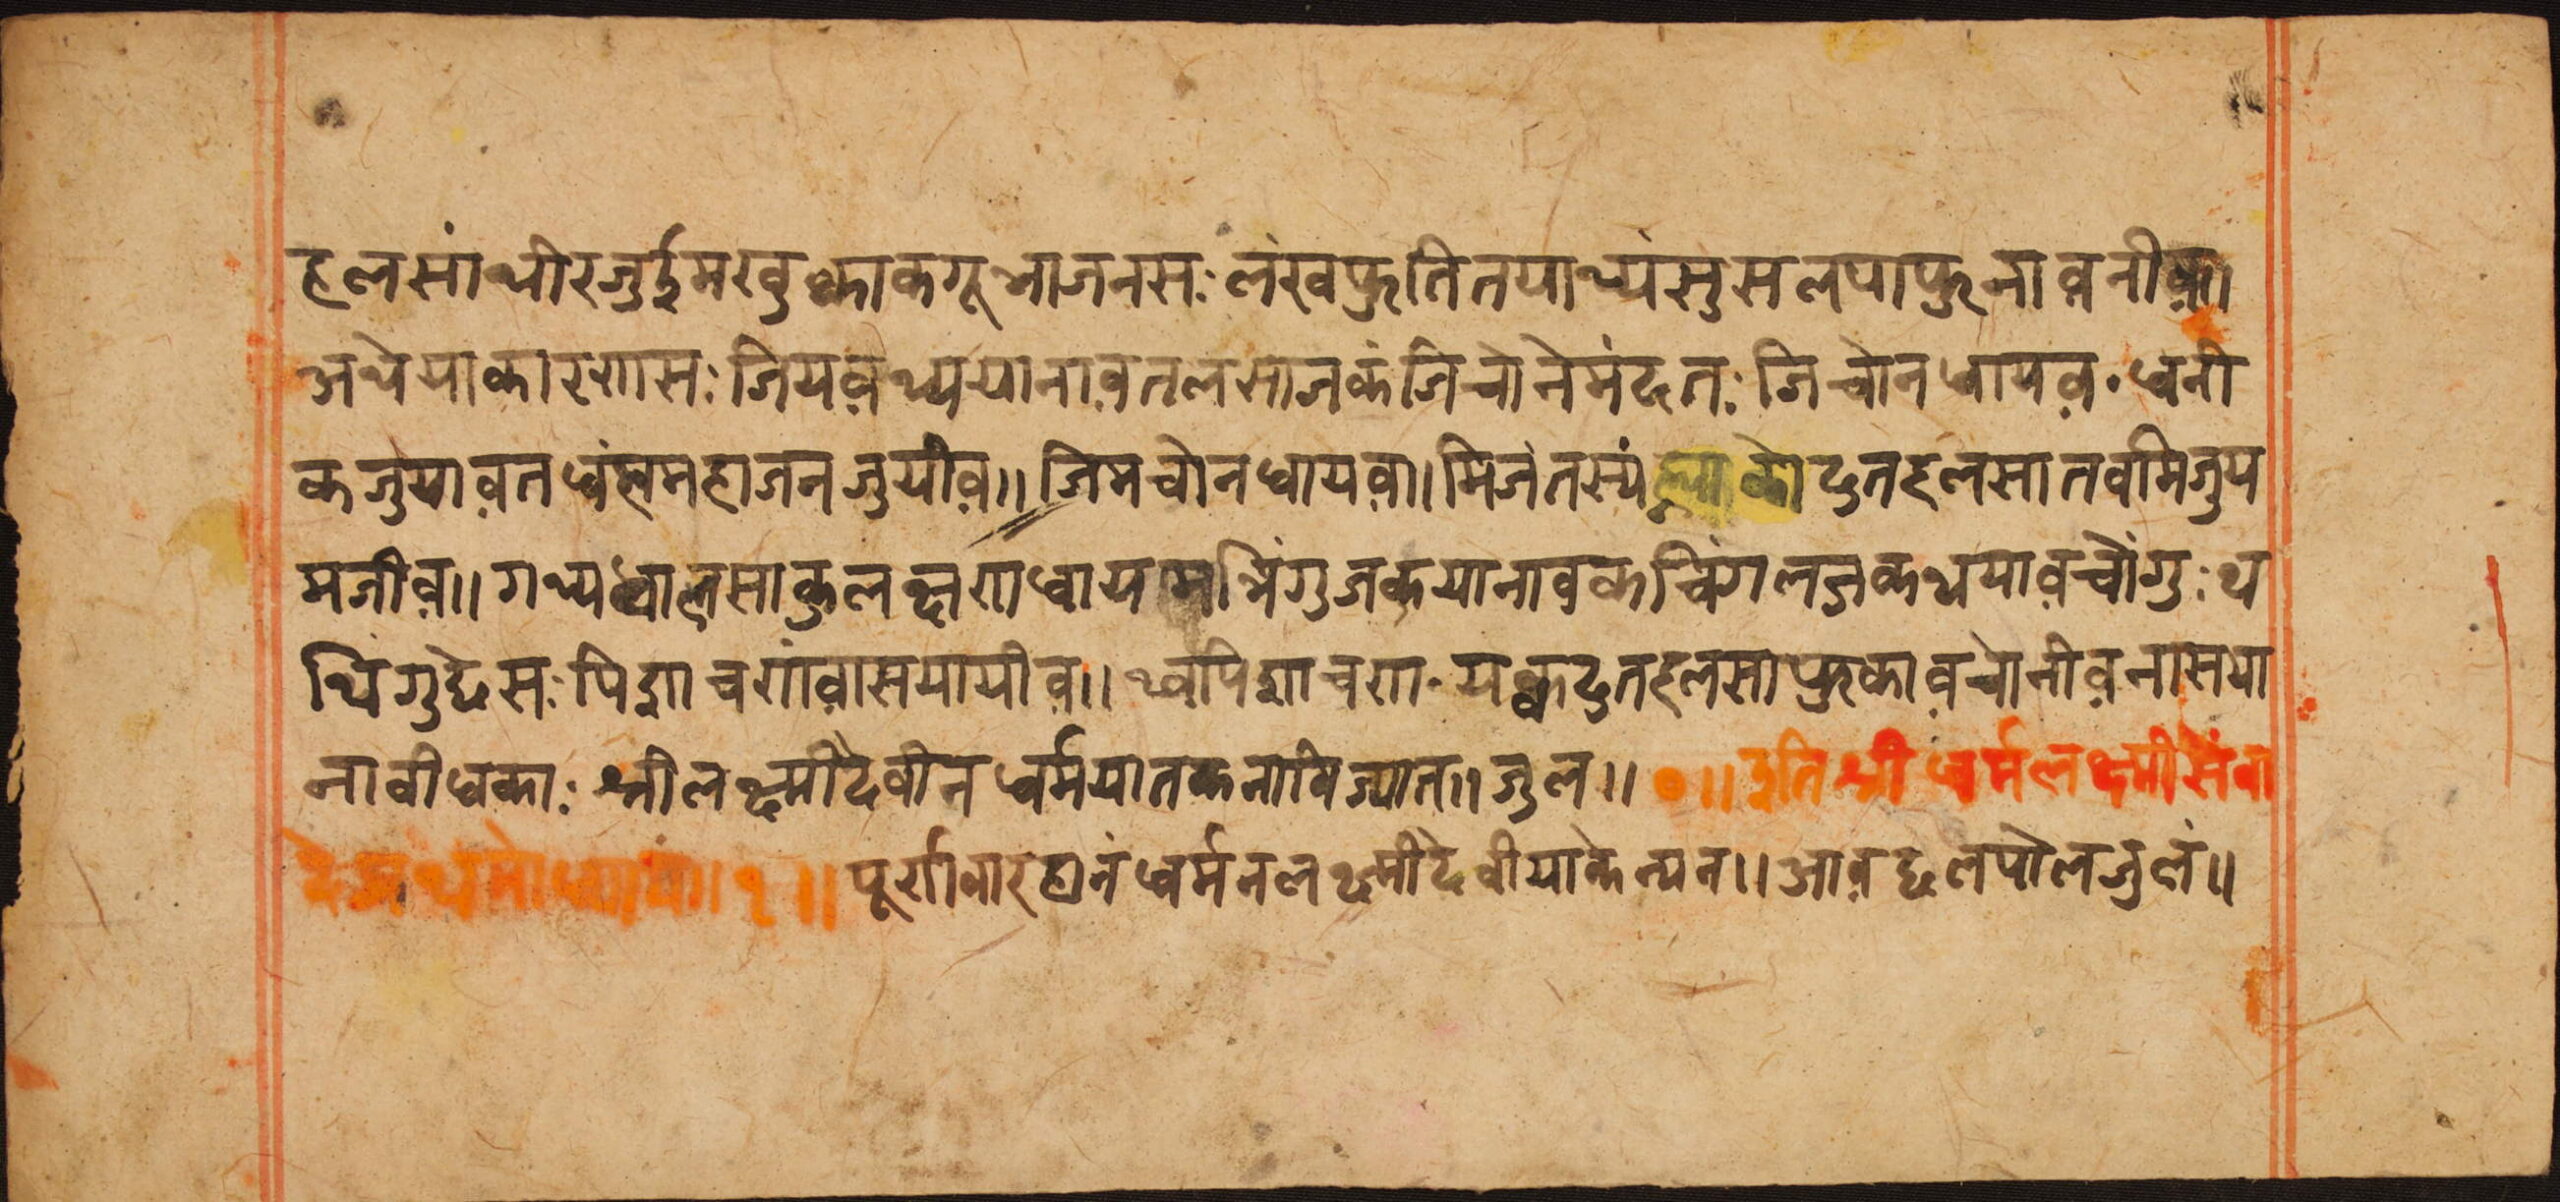 हलसां थीरजुईमखुक्वाकगूभाजनसः लंखफुतितयाथ्यंसुसलपाफुनावनीव।
अथेयाकारणसः जियवथ्ययानावतलसाजकंजिचोनेमंदतः जिचोनधायव॰ धनी
कजुयावतधंह्ममहाजनजुयीव॥ जिमचोनधायवा। मिजंतस्यं दुतहलसातवमिजुय
मजीव॥ गथ्यधालसाकुललक्षणधाय मभिंगुजकयानावकचिंगलजकथयावचोंगुः थ
थिंगुछेसः पिशाचगंवासयायीव॥ थ्वपिशाचग॰ यक्वदुतहलसाफुकावचोनीवनासया
नावीधकाः श्रीलक्ष्मीदेवीनधर्मयातकनाविज्यात॥ जुल॥ ०॥ इतिश्रीधर्मलक्ष्मीसंवा
देप्रथमोध्याय॥१॥ पूर्णावारह्यनंधर्मनलक्ष्मीदेवीयाकेन्यन॥ आवछलपोलजुलं॥